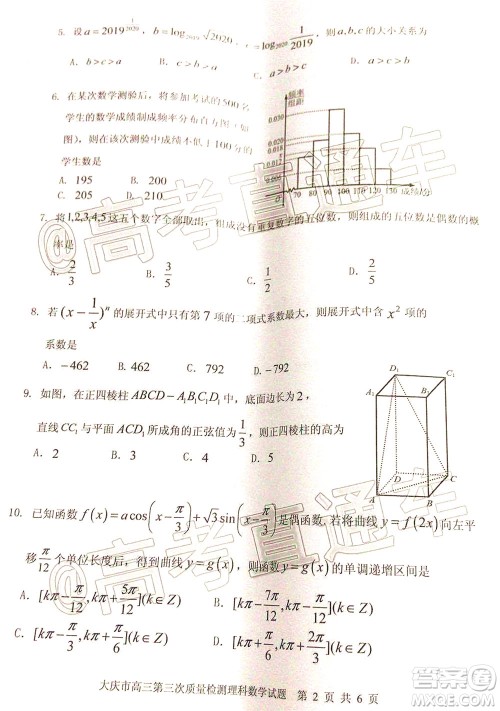 5. 设 a=2019^{1/2020}, b=log_{2019}√2020, c=log_{2020} 1/2019, 则 a,b,c 的大小关系为
A. b>c>a B. b>a>c C. a>b>c D. a>c>b
6. 在某次数学测验后，将参加考试的500名
学生的数学成绩制成频率分布直方图（如
图），则在该次测验中成绩不低于100分的
学生数是
A. 195 B. 200
C. 205 D. 210
频率
组距
0.030
0.020
0.018
0.012
70 80 90 100 110 120 130 成绩/分
7. 将1,2,3,4,5这五个数字全部取出，组成没有重复数字的五位数，则组成的五位数是偶数的概
率是
A. 2/3 B. 3/5 C. 1/2 D. 2/5
8. 若 (x-1/x)^n 的展开式中只有第7项的二项式系数最大，则展开式中含 x^2 项的
系数是
A. -462 B. 462 C. 792 D. -792
9. 如图，在正四棱柱 ABCD-A1B1C1D1 中，底面边长为2，
直线 CC1 与平面 ACD1 所成角的正弦值为 1/3，则正四棱柱的高为
A. 2 B. 3 C. 4 D. 5
D1 C1
A1 B1
D C
A B
10. 已知函数 f(x)=acos(x-π/3)+√3sin(x-π/3) 是偶函数. 若将曲线 y=f(2x) 向左平
移 π/12 个单位长度后，得到曲线 y=g(x)，则函数 y=g(x) 的单调递增区间是
A. [kπ-π/12, kπ+5π/12](k∈Z) B. [kπ-7π/12, kπ-π/12](k∈Z)
C. [kπ-π/3, kπ+π/6](k∈Z) D. [kπ+π/6, kπ+2π/3](k∈Z)
大庆市高三第三次质量检测理科数学试题 第 2 页 共 6 页
@高考直通车
@高考直通车